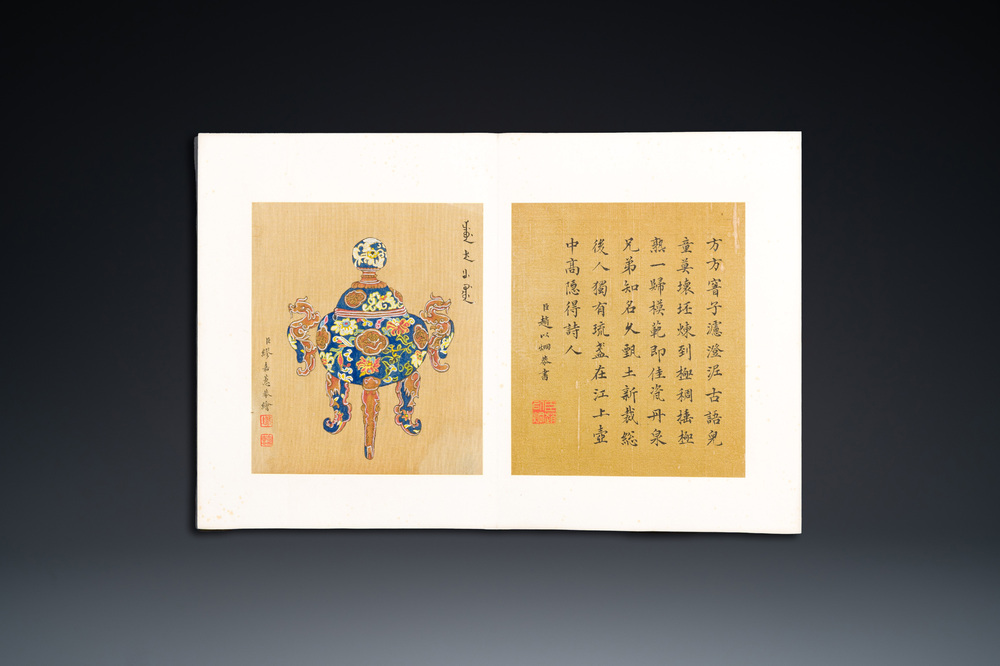 方方窨子濾澄泥古語兒
童莫壊坯煉到極稠搖極
熟一歸模範即佳瓷丹泉
兄弟知名久甄土新裁総
後人獨有琉盞在江上壺
中高隱得詩人
臣趙以炯恭書
臣繆嘉惠恭繪